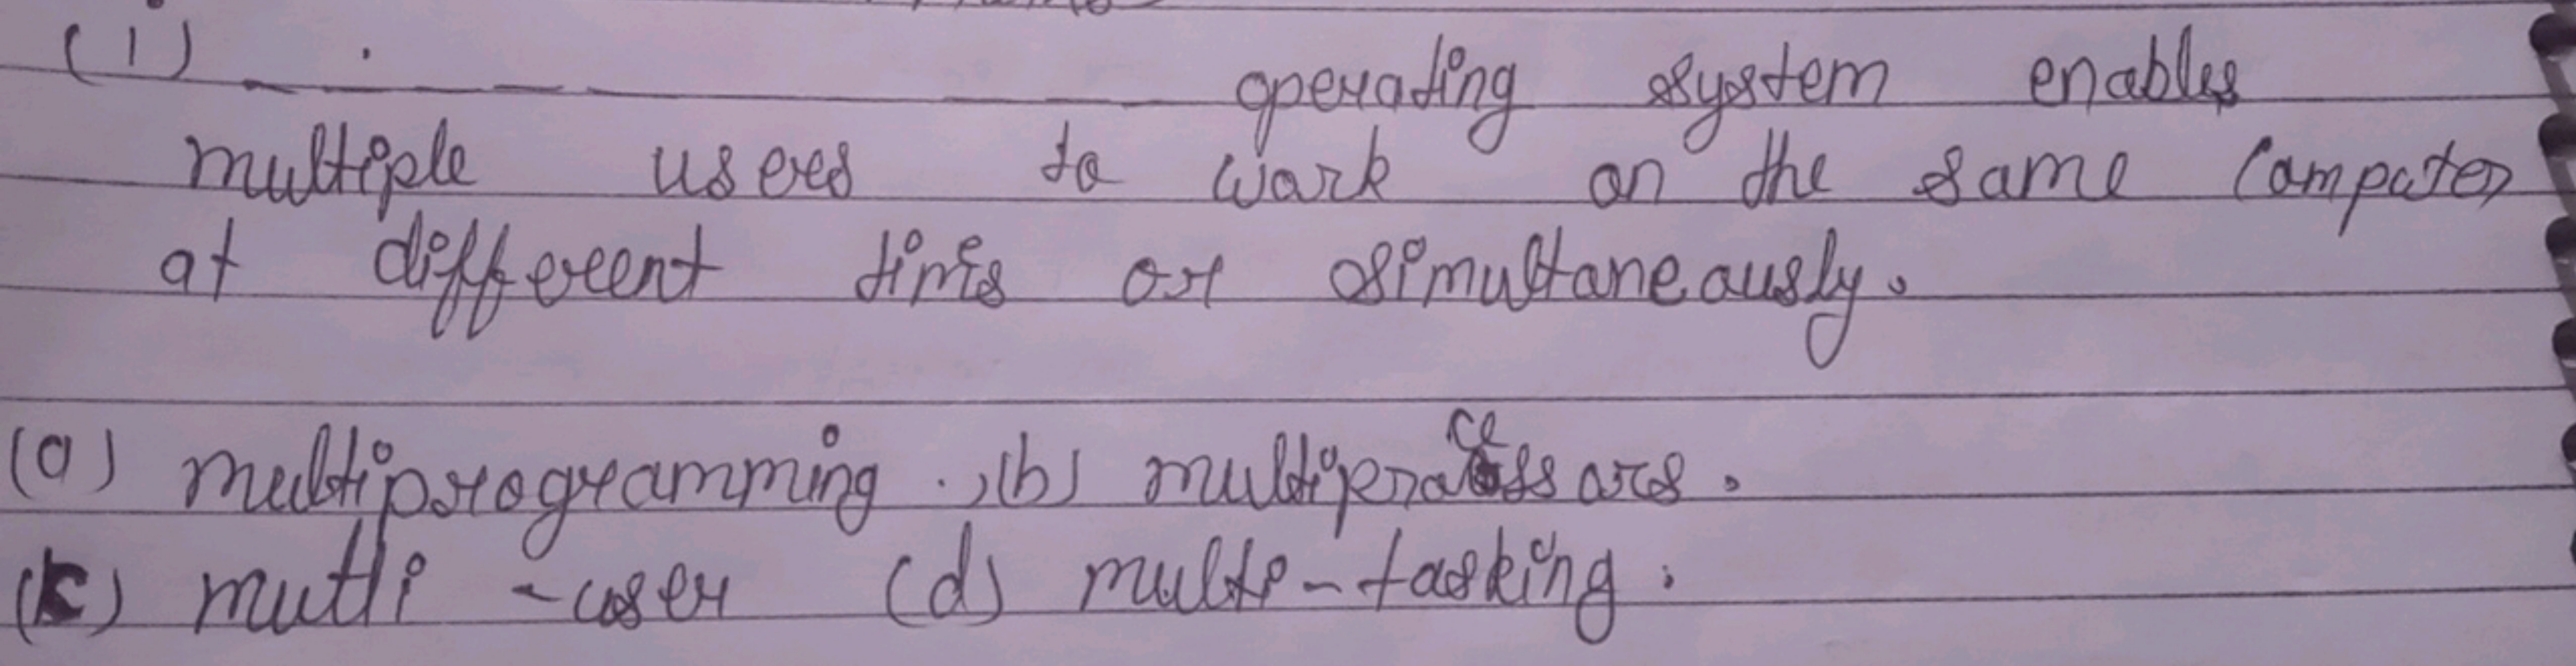 (i) ________ operating system enables
multiple users to work on the same Computer
at different times or simultaneously.
(a) multiprogramming . , (b) multiprocessors.
(c) mutli - user (d) multi - tasking.